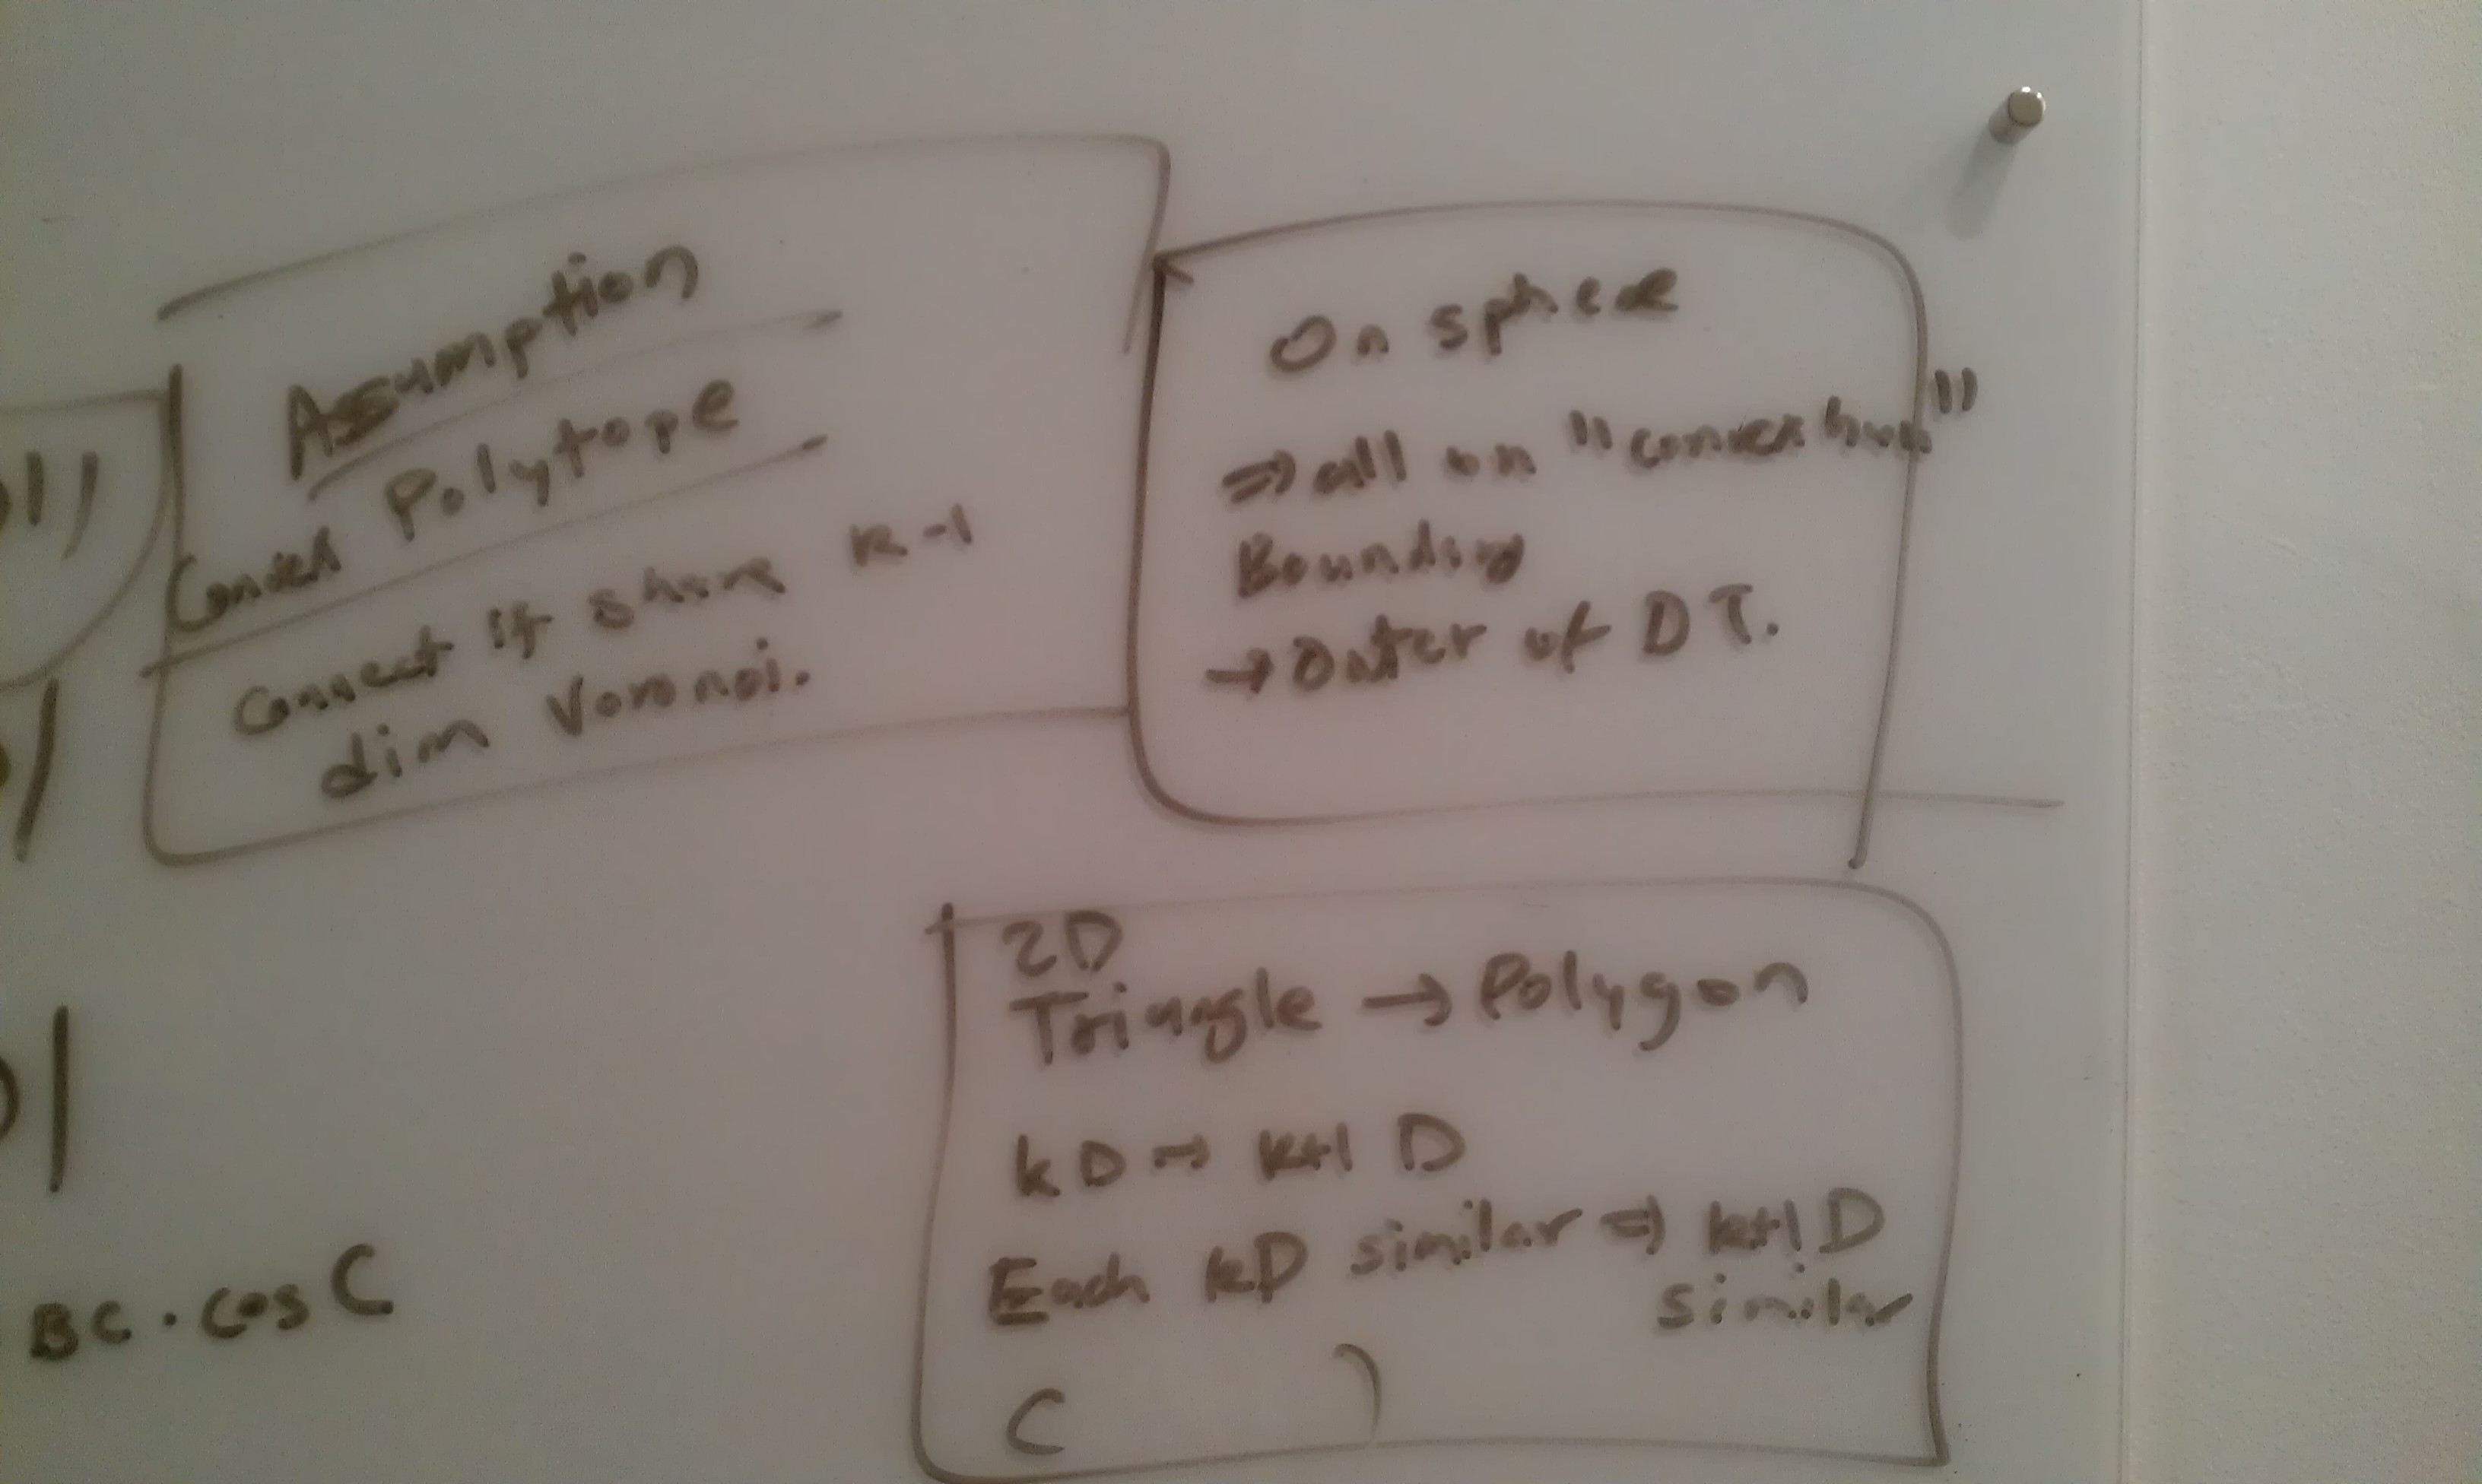 Assumption
Convex Polytope
Connect if share k-1
dim Voronoi.
On sphere
⇒ all on "convex hull"
Bounding
→ Outer of DT.
2D
Triangle → Polygon
kD → k+1 D
Each kD similar ⇒ k+1 D
similar
C )
BC · cos C